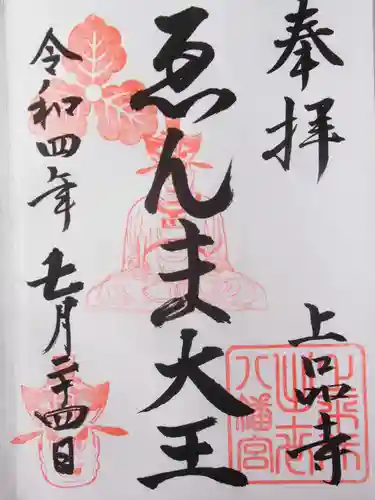 奉拝
上品寺
ゑんま大王
令和四年七月二十四日
八幡宮